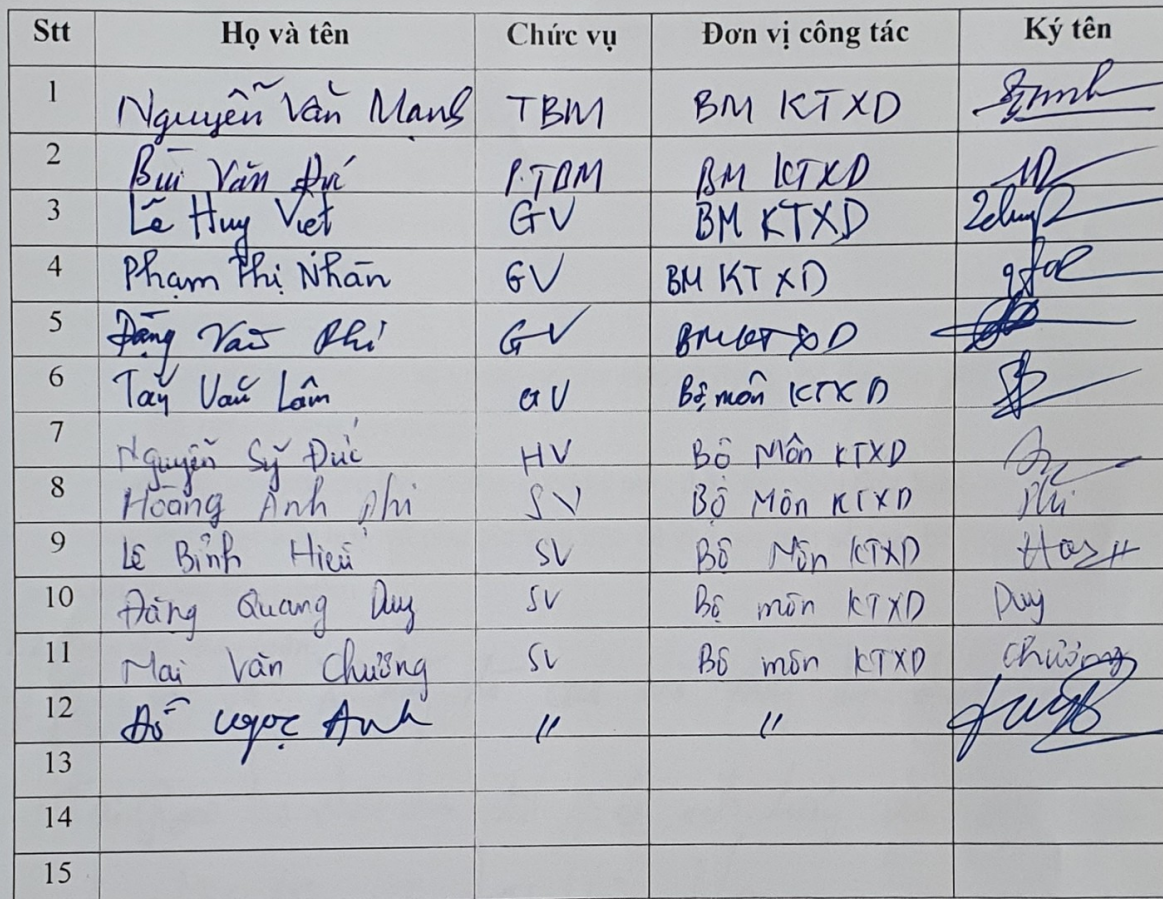 Stt Họ và tên Chức vụ Đơn vị công tác Ký tên
1 Nguyễn Văn Mạnh TBM BM KTXD
2 Bùi Văn Đức P.TBM BM KTXD
3 Lê Huy Việt GV BM KTXD
4 Phạm Thị Nhàn GV BM KTXD
5 Đặng Văn Phi GV BM KTXD
6 Tăng Văn Lâm GV Bộ môn KTXD
7 Nguyễn Sỹ Đức HV Bộ Môn KTXD
8 Hoàng Anh Phi SV Bộ Môn KTXD Phi
9 Lê Bỉnh Hiếu SV Bộ Môn KTXD
10 Đặng Quang Duy SV Bộ môn KTXD Duy
11 Mai Văn Chương SV Bộ môn KTXD Chương
12 Đỗ Ngọc Anh " "
13
14
15